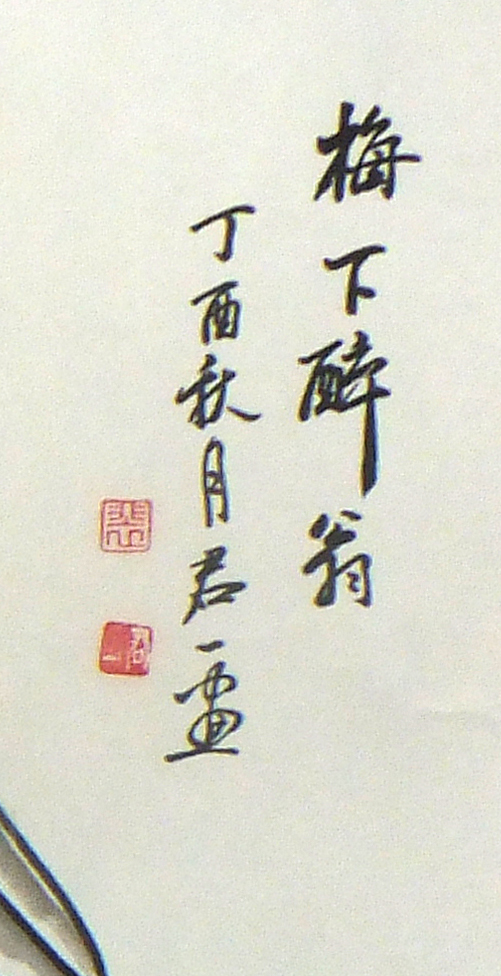 梅下醉翁
丁酉秋月君一画